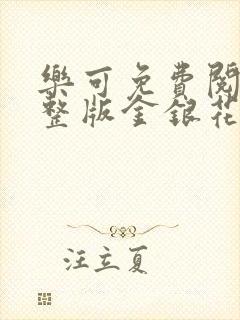 樂可免費閱
整版金銀花
汪立夏